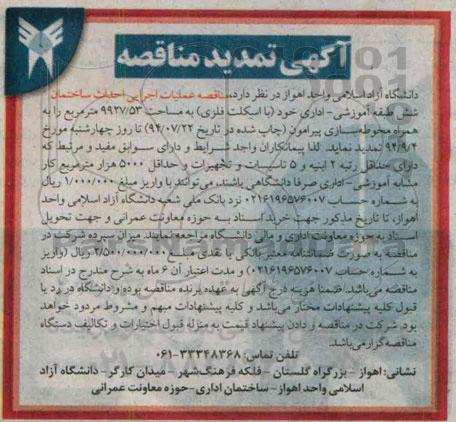 آگهی تمدید مناقصه
دانشگاه آزاد اسلامی واحد اهواز در نظر دارد، مناقصه عملیات اجرایی احداث ساختمان
شش طبقه آموزشی - اداری خود (با اسکلت فلزی) به مساحت ۹۹۲۷/۵۳ مترمربع را به
همراه محوطه‌سازی پیرامون (چاپ شده در تاریخ ۹۴/۰۷/۲۲) تا روز چهارشنبه مورخ
۹۴/۹/۴ تمدید نماید. لذا پیمانکاران واجد شرایط و دارای سوابق مفید و مرتبط که
دارای حداقل رتبه ۲ ابنیه و ۵ تاسیسات و تجهیزات و حداقل ۵۰۰۰ هزار مترمربع کار
مشابه آموزشی - اداری صرفا دانشگاهی باشند، می‌توانند با واریز مبلغ ۱/۰۰۰/۰۰۰ ریال
به شماره حساب ۰۲۱۶۱۹۶۵۷۶۰۰۷ نزد بانک ملی شعبه دانشگاه آزاد اسلامی واحد
اهواز، تا تاریخ مذکور جهت خرید اسناد به حوزه معاونت عمرانی و جهت تحویل
اسناد به حوزه معاونت اداری و مالی دانشگاه مراجعه نمایند. میزان سپرده شرکت در
مناقصه به صورت ضمانتنامه معتبر بانکی یا نقدی مبلغ ۲/۵۰۰/۰۰۰/۰۰۰ ریال (واریز
به شماره حساب ۰۲۱۶۱۹۶۵۷۶۰۰۷) و مدت اعتبار آن ۶ ماه به شرح مندرج در اسناد
مناقصه می‌باشد. ضمنا هزینه درج آگهی به عهده برنده مناقصه بوده و دانشگاه در رد یا
قبول کلیه پیشنهادات مختار می‌باشد و کلیه پیشنهادات مبهم و مشروط مردود خواهد
بود. شرکت در مناقصه و دادن پیشنهاد قیمت به منزله قبول اختیارات و تکالیف دستگاه
مناقصه‌گزار می‌باشد.
تلفن تماس: ۳۳۳۴۸۳۶۸-۰۶۱
نشانی: اهواز - بزرگراه گلستان - فلکه فرهنگ‌شهر - میدان کارگر - دانشگاه آزاد
اسلامی واحد اهواز - ساختمان اداری - حوزه معاونت عمرانی